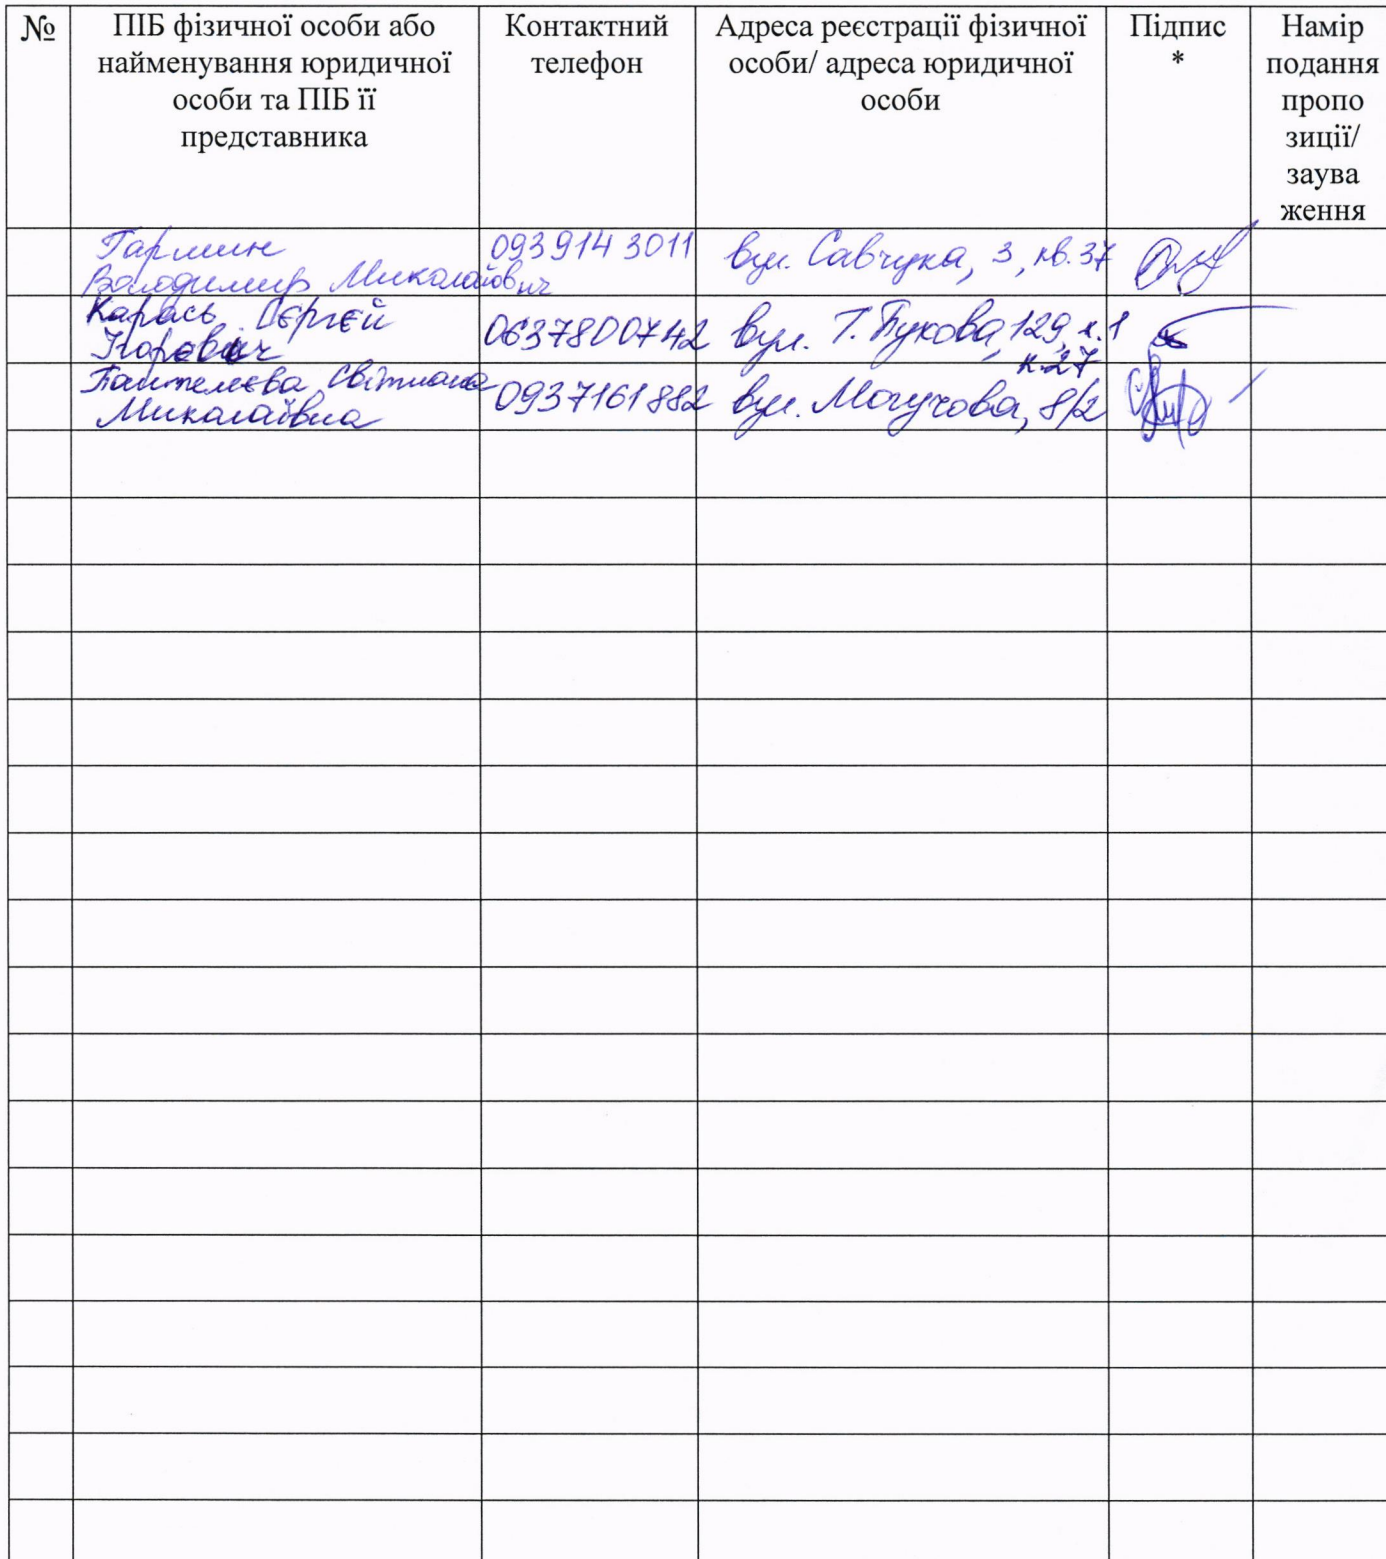 №
ПІБ фізичної особи або
найменування юридичної
особи та ПІБ її
представника
Контактний
телефон
Адреса реєстрації фізичної
особи/ адреса юридичної
особи
Підпис
*
Намір
подання
пропо
зиції/
заува
ження
Гармин
Володимир Миколайович
093 914 3011
вул. Савчука, 3, кв. 37
Карась Сєргєй
0637800742
вул. Т. 129, к.1
к.27
Світлана
Миколаївна
0937161882
вул. Могучова, 8/2